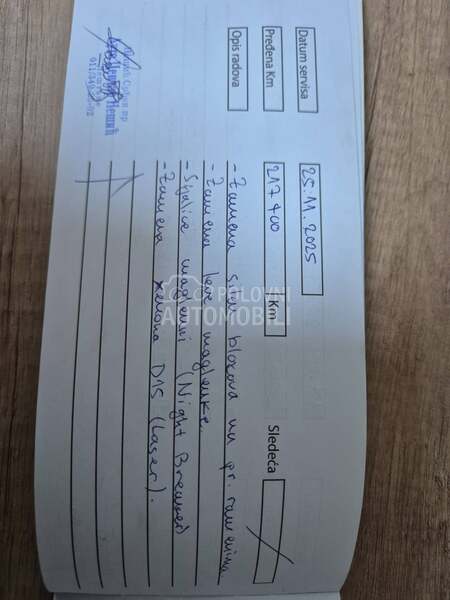 Datum servisa 25.11.2025
Pređena Km 217 400 Km Sledeća
Opis radova
- Zamena silen blokova na pr. ramenima
- Zamena leve maglenke.
- Sijalice maglenki (Night Breaker)
- Zamena xenona D1S (Laser).
POLOVNI
AUTOMOBILI